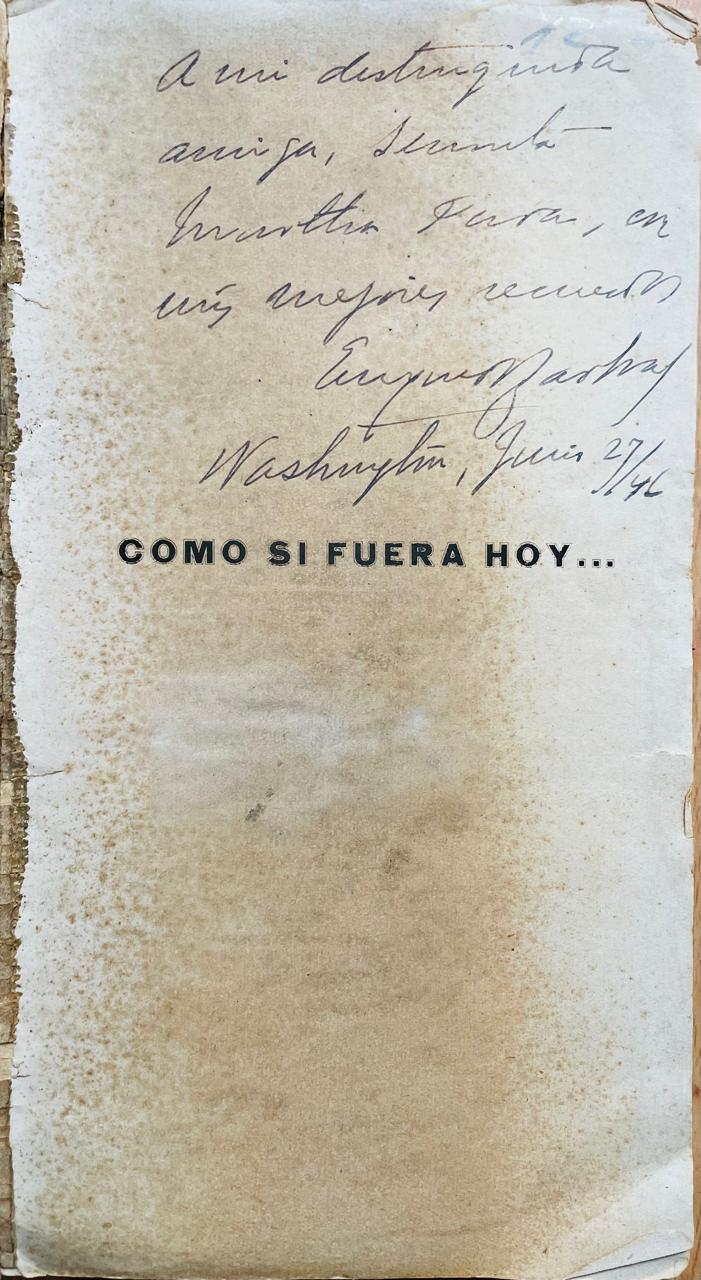 A mi distinguida
amiga, Señorita
Martha, con
mis mejores recuerdos
Washington, Junio 27/46
COMO SI FUERA HOY...